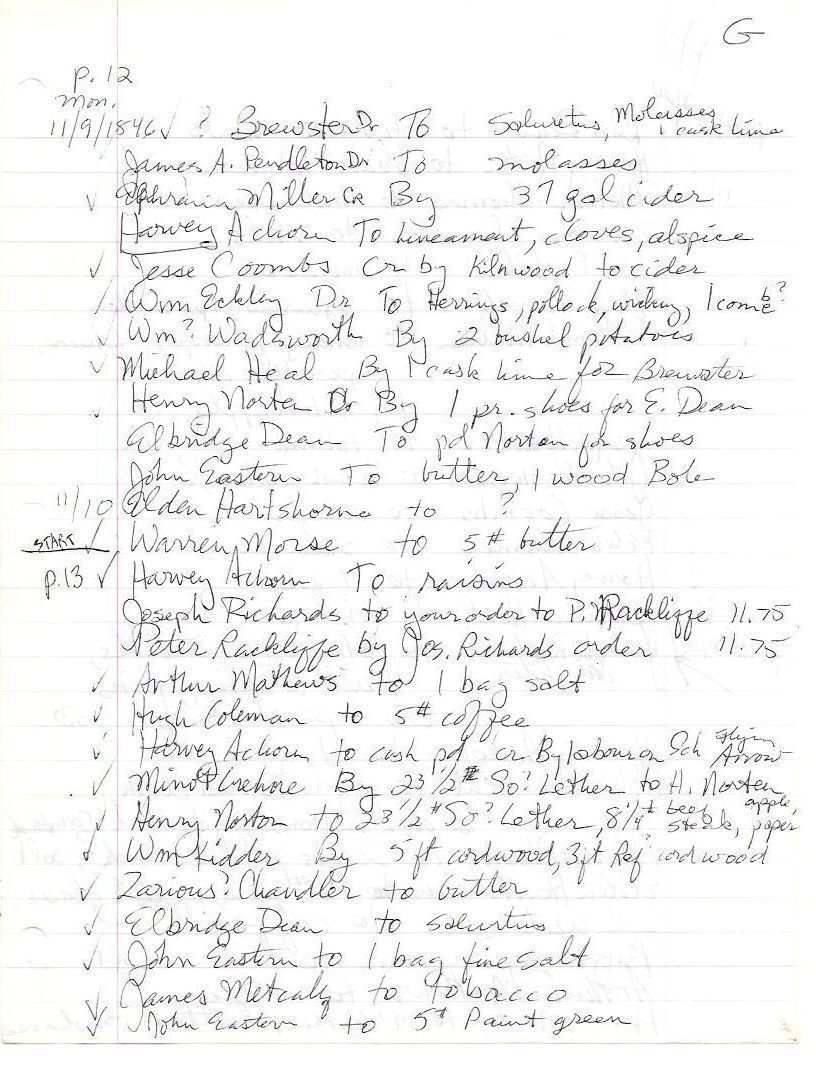 G
p. 12
Mon.
11/9/1846 ✓ ? Brewster Dr To Saluretus, Molasses, 1 cask lime
James A. Pendleton Dr To molasses
✓ Ephraim Miller Cr By 37 gal cider
Harvey Achorn To Lineament, cloves, alspice
✓ Jesse Coombs Cr by Kilnwood to cider
✓ Wm Eckley Dr To Herrings, pollock, wicking, 1 comb?
✓ Wm? Wadsworth By 2 bushel potatoes
✓ Michael Heal By 1 cask lime for Brewster
✓ Henry Norten Cr By 1 pr. shoes for E. Dean
Elbridge Dean To pd Norton for shoes
John Eastern To butter, 1 wood Bole
11/10 Elden Hartshorne to ?
START ✓ Warren Morse to 5# butter
p.13 ✓ Harvey Achorn To raisins
Joseph Richards to your order to P. Rackliffe 11.75
Peter Rackliffe by Jos. Richards order 11.75
✓ Arthur Mathews to 1 bag salt
✓ Hugh Coleman to 5# coffee
✓ Harvey Achorn to cash pd cr By labour on Sch Flying Arrow
✓ Minot Crehore By 23 1/2 # So? Lether to H. Norten
✓ Henry Norton to 23 1/2 # So? Lether, 8 1/4 # beef steak, apple, paper
✓ Wm Kidder By 5 ft cordwood, 3 ft Ref? cordwood
✓ Zarious? Chandler to butter
✓ Elbridge Dean to salurtus
✓ John Eastern to 1 bag fine salt
✓ James Metcalf to tobacco
✓ John Eastern to 5# Paint green